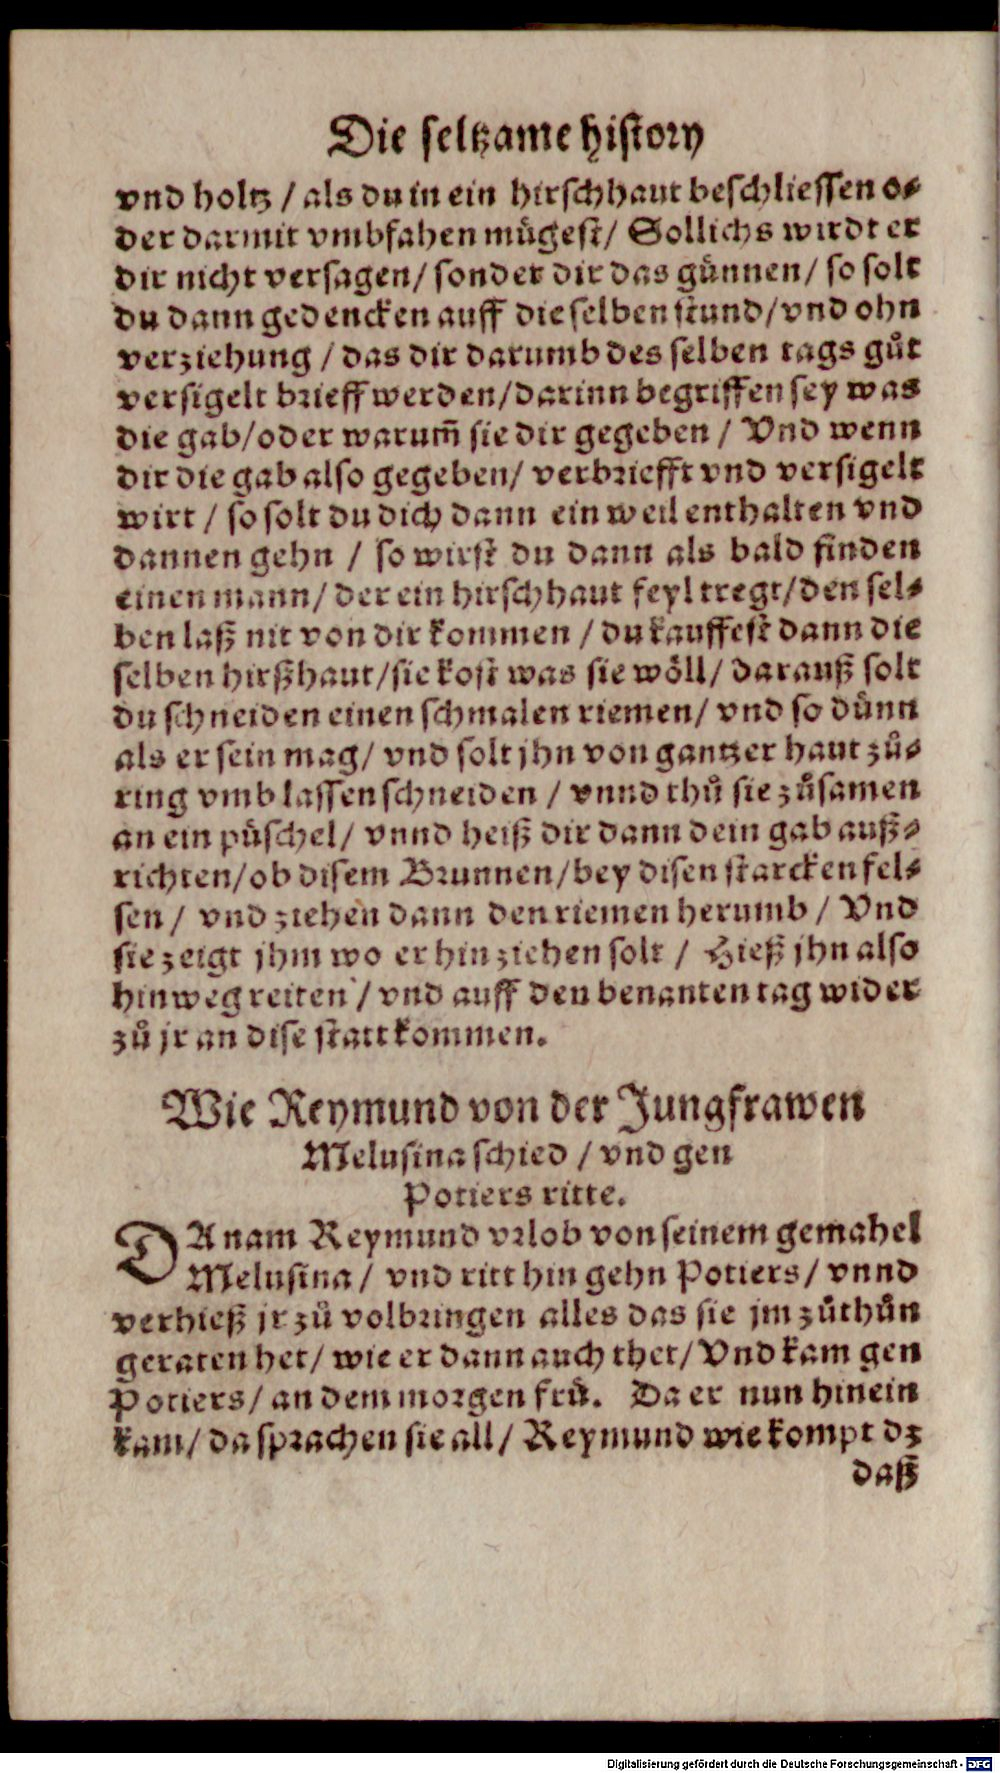 Die seltzame history
vnd holtz / als du in ein hirschhaut beschliessen o⸗
der darmit vmbfahen mügest/ Sollichs wirdt er
dir nicht versagen/ sonder dir das günnen/ so solt
du dann gedencken auff die selben stund/ vnd ohn
verziehung / das dir darumb des selben tags gůt
versigelt brieff werden/ darinn begriffen sey was
die gab/ oder warum̃ sie dir gegeben / Vnd wenn
dir die gab also gegeben/ verbriefft vnd versigelt
wirt / so solt du dich dann ein weil enthalten vnd
dannen gehn / so wirst du dann als bald finden
einen mann/ der ein hirschhaut feyl tregt/ den sel⸗
ben laß nit von dir kommen / du kauffest dann die
selben hirßhaut/ sie kost was sie wöll/ darauß solt
du schneiden einen schmalen riemen/ vnd so dünn
als er sein mag/ vnd solt jhn von gantzer haut zů⸗
ring vmb lassen schneiden / vnnd thů sie zůsamen
an ein püschel/ vnnd heiß dir dann dein gab auß⸗
richten/ ob disem Brunnen/ bey disen starcken fel⸗
sen / vnd ziehen dann den riemen herumb / Vnd
sie zeigt jhm wo er hin ziehen solt / Hieß jhn also
hinweg reiten / vnd auff den benanten tag wider
zů jr an dise statt kommen.
Wie Reymund von der Jungfrawen
Melusina schied / vnd gen
Potiers ritte.
DA nam Reymund vrlob von seinem gemahel
Melusina / vnd ritt hin gehn Potiers / vnnd
verhieß jr zů volbringen alles das sie jm zůthůn
geraten het/ wie er dann auch thet/ Vnd kam gen
Potiers/ an dem morgen frü. Da er nun hinein
kam/ da sprachen sie all/ Reymund wie kompt dz
daß
Digitalisierung gefördert durch die Deutsche Forschungsgemeinschaft - DFG